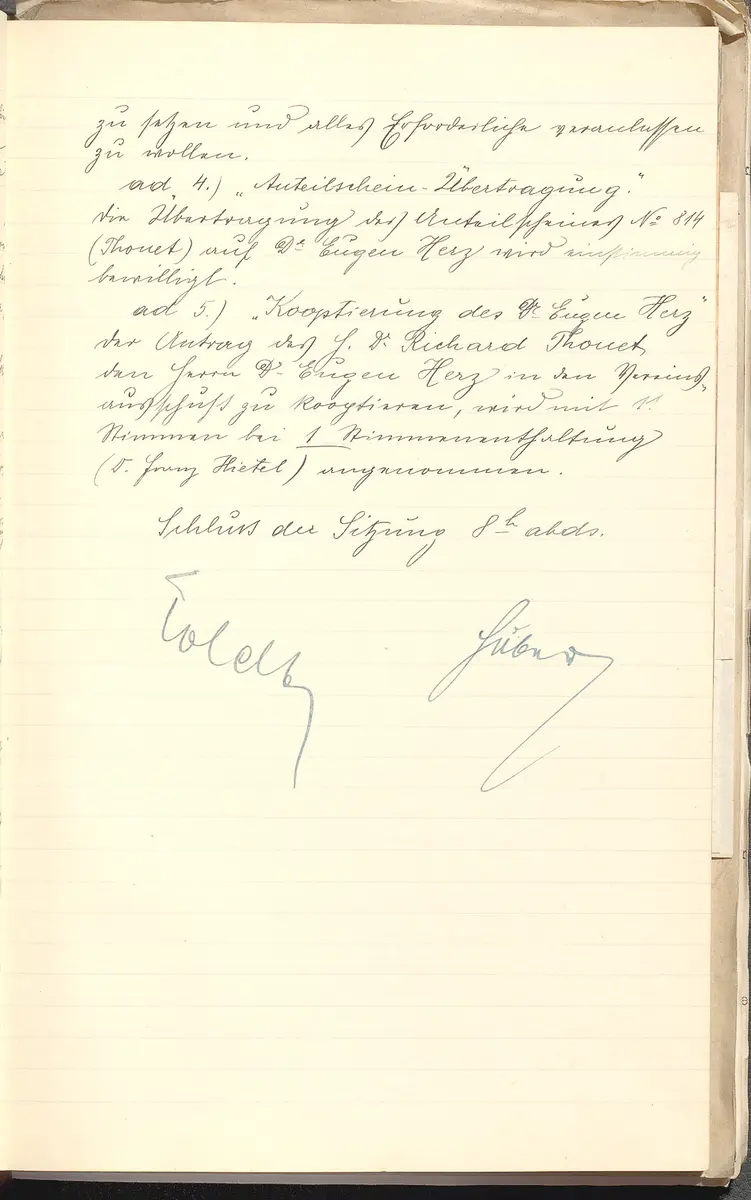 zu setzen und alles Erforderliche veranlassen
zu wollen.
ad 4.) „Anteilschein-Übertragung."
Die Übertragung des Anteilscheines No 814
(Thonet) auf Dr Eugen Herz wird einstimmig
bewilligt.
ad 5.) „Kooptierung des Dr Eugen Herz"
Der Antrag des H. Dr Richard Thonet
den Herrn Dr Eugen Herz in den Vereins-
ausschuß zu kooptieren, wird mit 11
Stimmen bei 1 Stimmenenthaltung
(D. Franz Hietel) angenommen.
Schluss der Sitzung 8h abds.